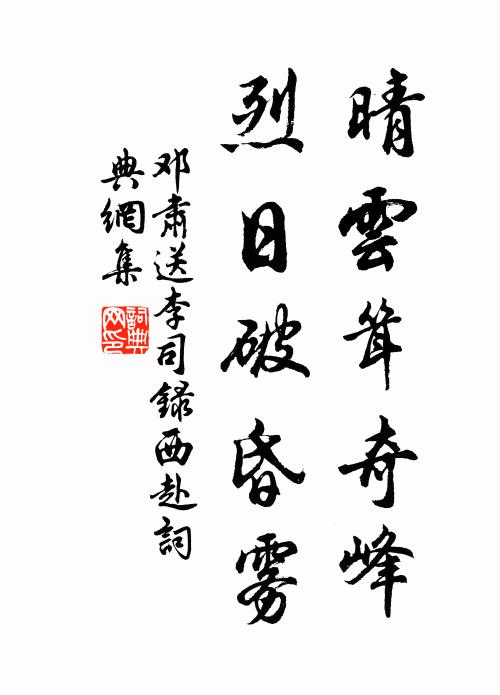 晴雲耸奇峰
烈日破昏雾
邓肃送李司録西赴詞
典網集
詞典
网印